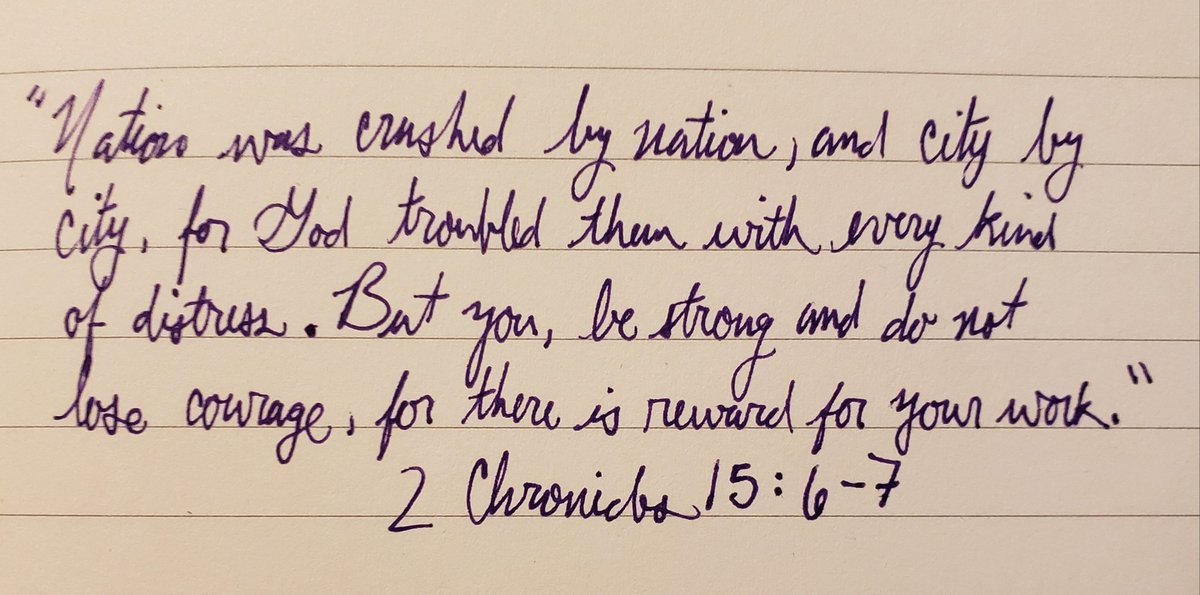 "Nation was crushed by nation, and city by
city, for God troubled them with every kind
of distress. But you, be strong and do not
lose courage, for there is reward for your work."
2 Chronicles 15:6-7